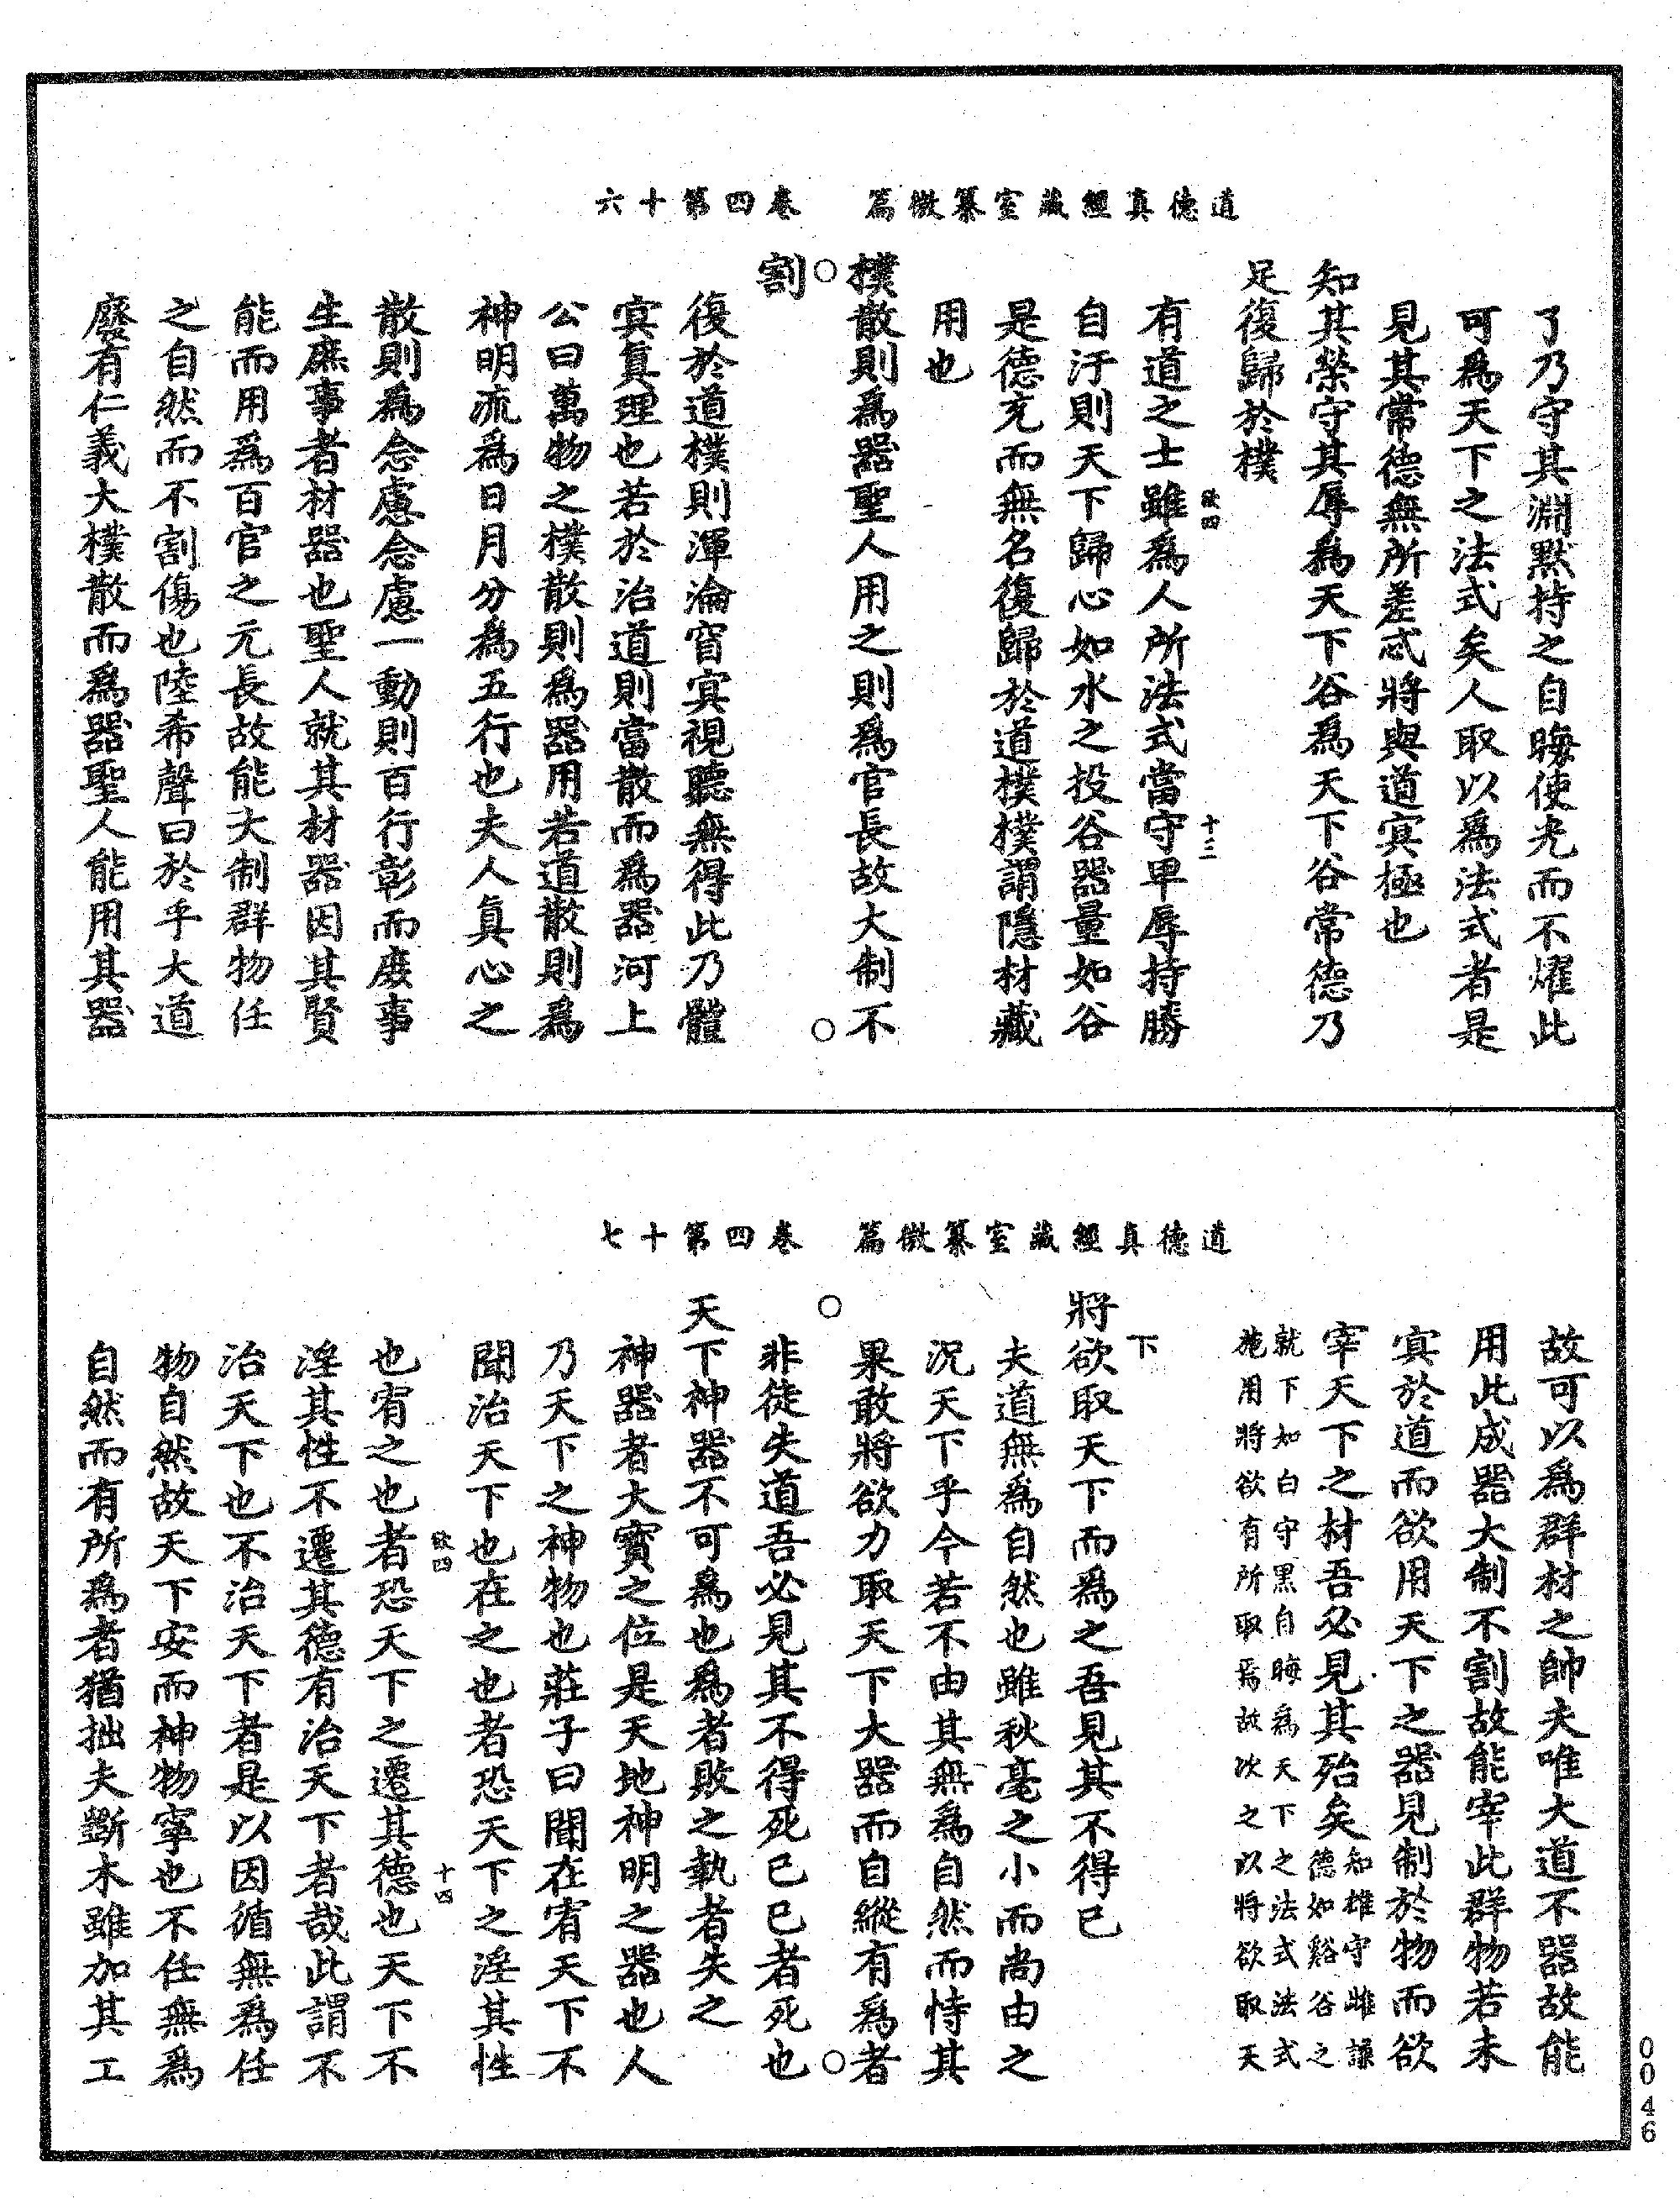 道德真經藏室纂微篇　卷四第十六
了乃守其淵默持之自晦使光而不燿此
可爲天下之法式矣人取以爲法式者是
見其常德無所差忒將與道冥極也
知其榮守其辱爲天下谷爲天下谷常德乃
足復歸於樸
欲四　十三
有道之士雖爲人所法式當守卑辱持勝
自汙則天下歸心如水之投谷器量如谷
是德充而無名復歸於道樸樸謂隱材藏
用也
樸散則爲器聖人用之則爲官長故大制不
割
復於道樸則渾淪窅冥視聽無得此乃體
冥真理也若於治道則當散而爲器河上
公曰萬物之樸散則爲器用若道散則爲
神明流爲日月分爲五行也夫人真心之
散則爲念慮念慮一動則百行彰而廢事
生庶事者材器也聖人就其材器因其賢
能而用爲百官之元長故能大制群物任
之自然而不割傷也陸希聲曰於乎大道
廢有仁義大樸散而爲器聖人能用其器
道德真經藏室纂微篇　卷四第十七
故可以爲群材之帥夫唯大道不器故能
用此成器大制不割故能宰此群物若未
冥於道而欲用天下之器見制於物而欲
宰天下之材吾必見其殆矣
知雄守雌謙
德如谿谷之
就下如白守黑自晦爲天下之法式法式
施用將欲有所取焉故次之以將欲取天
下
將欲取天下而爲之吾見其不得已
夫道無爲自然也雖秋毫之小而尚由之
況天下乎今若不由其無爲自然而恃其
果敢將欲力取天下大器而自縱有爲者
非徒失道吾必見其不得死已已者死也
天下神器不可爲也爲者敗之執者失之
神器者大寶之位是天地神明之器也人
乃天下之神物也莊子曰聞在宥天下不
聞治天下也在之也者恐天下之淫其性
欲四　十四
也宥之也者恐天下之遷其德也天下不
淫其性不遷其德有治天下者哉此謂不
治天下也不治天下者是以因循無爲任
物自然故天下安而神物寧也不任無爲
自然而有所爲者猶拙夫斲木雖加其工
0046